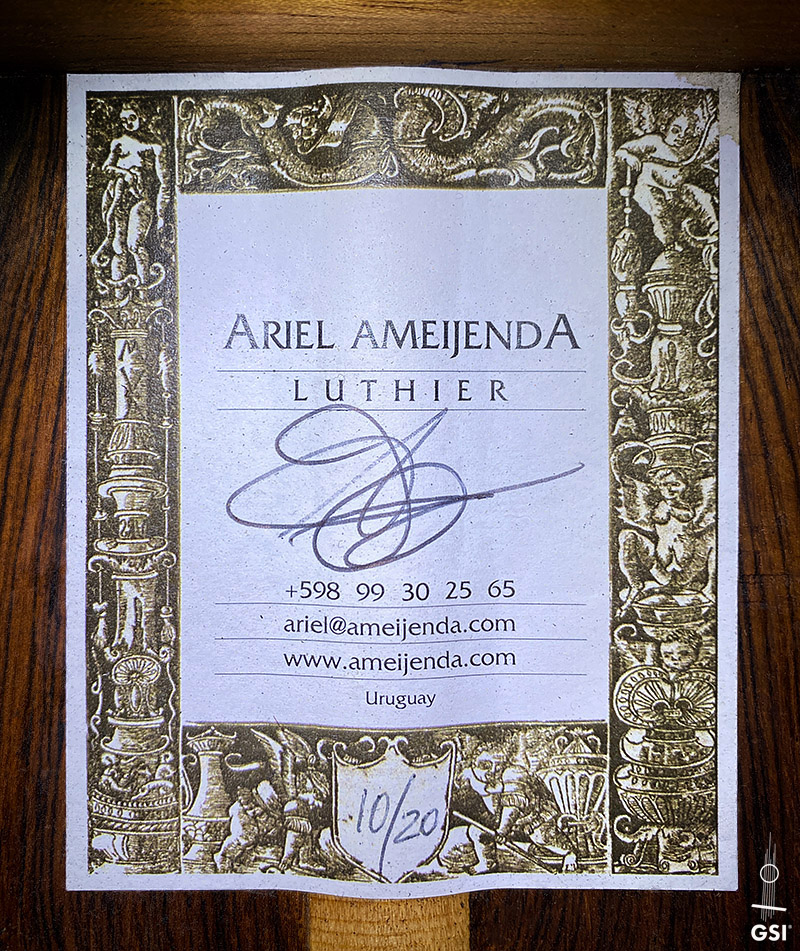 ARIEL AMEIJENDA
LUTHIER
+598 99 30 25 65
ariel@ameijenda.com
www.ameijenda.com
Uruguay
10/20
GSI